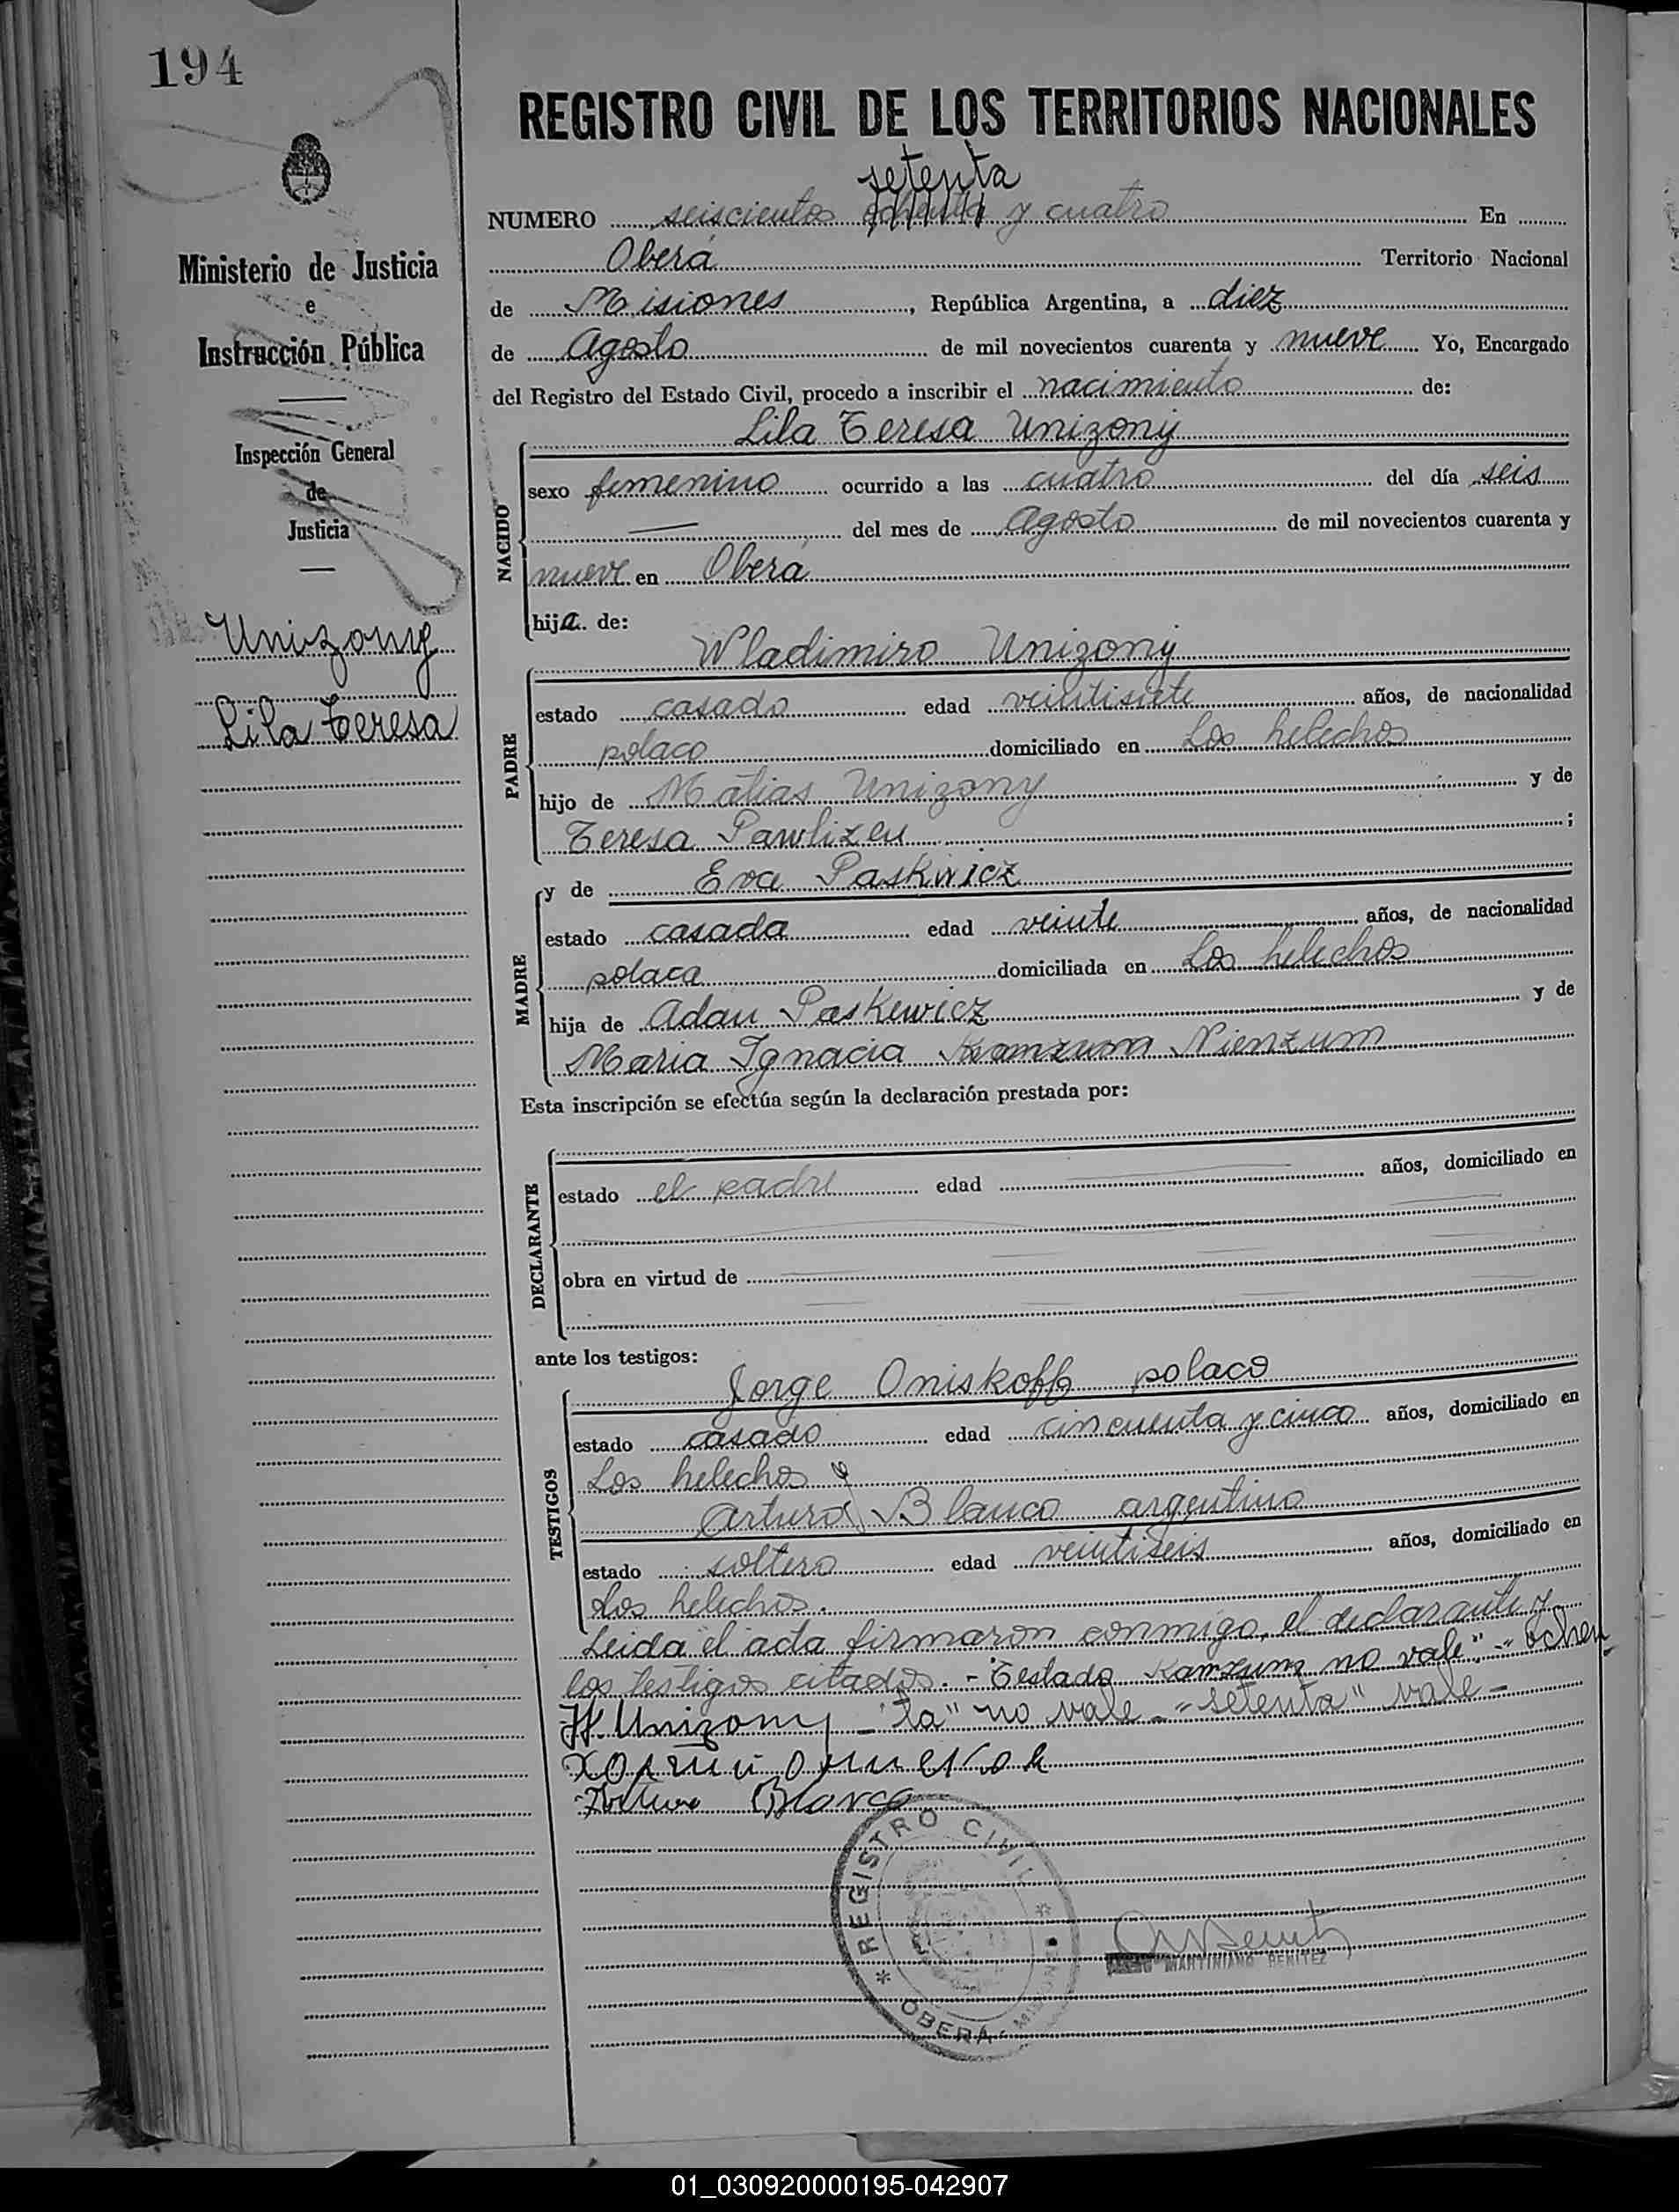 194
REGISTRO CIVIL DE LOS TERRITORIOS NACIONALES
setenta
NUMERO seiscientos ochenta y cuatro En
Oberá Territorio Nacional
de Misiones, República Argentina, a diez
de Agosto de mil novecientos cuarenta y nueve Yo, Encargado
del Registro del Estado Civil, procedo a inscribir el nacimiento de:
Lila Teresa Unizonj
sexo femenino ocurrido a las cuatro del día seis
— del mes de Agosto de mil novecientos cuarenta y
nueve en Oberá
hija de:
NACIDO
Wladimiro Unizonj
estado casado edad veintisiete años, de nacionalidad
polaco domiciliado en Los helechos
hijo de Matias Unizony y de
Teresa Pawlizen ;
PADRE
y de Eva Paskwicz
estado casada edad veinte años, de nacionalidad
polaca domiciliada en Los helechos
hija de Adan Paskewicz y de
Maria Ignacia Kamzum Nienzum
MADRE
Esta inscripción se efectúa según la declaración prestada por:
estado el padre edad años, domiciliado en
obra en virtud de
DECLARANTE
ante los testigos:
Jorge Oniskoff polaco
estado casado edad cincuenta y cinco años, domiciliado en
Los helechos y
Arturo Blanco argentino
estado soltero edad veintiseis años, domiciliado en
Los helechos.
TESTIGOS
Leida el acta firmaron conmigo, el declarante y
los testigos citados. - Testado Kamzum no vale" - "ochen
W. Unizony - ta" no vale - "setenta" vale -
Arturo Blanco
REGISTRO CIVIL
OBERA - MISIONES
MARTINIANO BENITEZ
Ministerio de Justicia
e
Instrucción Pública
Inspección General
de
Justicia
Unizony
Lila Teresa
01_030920000195-042907